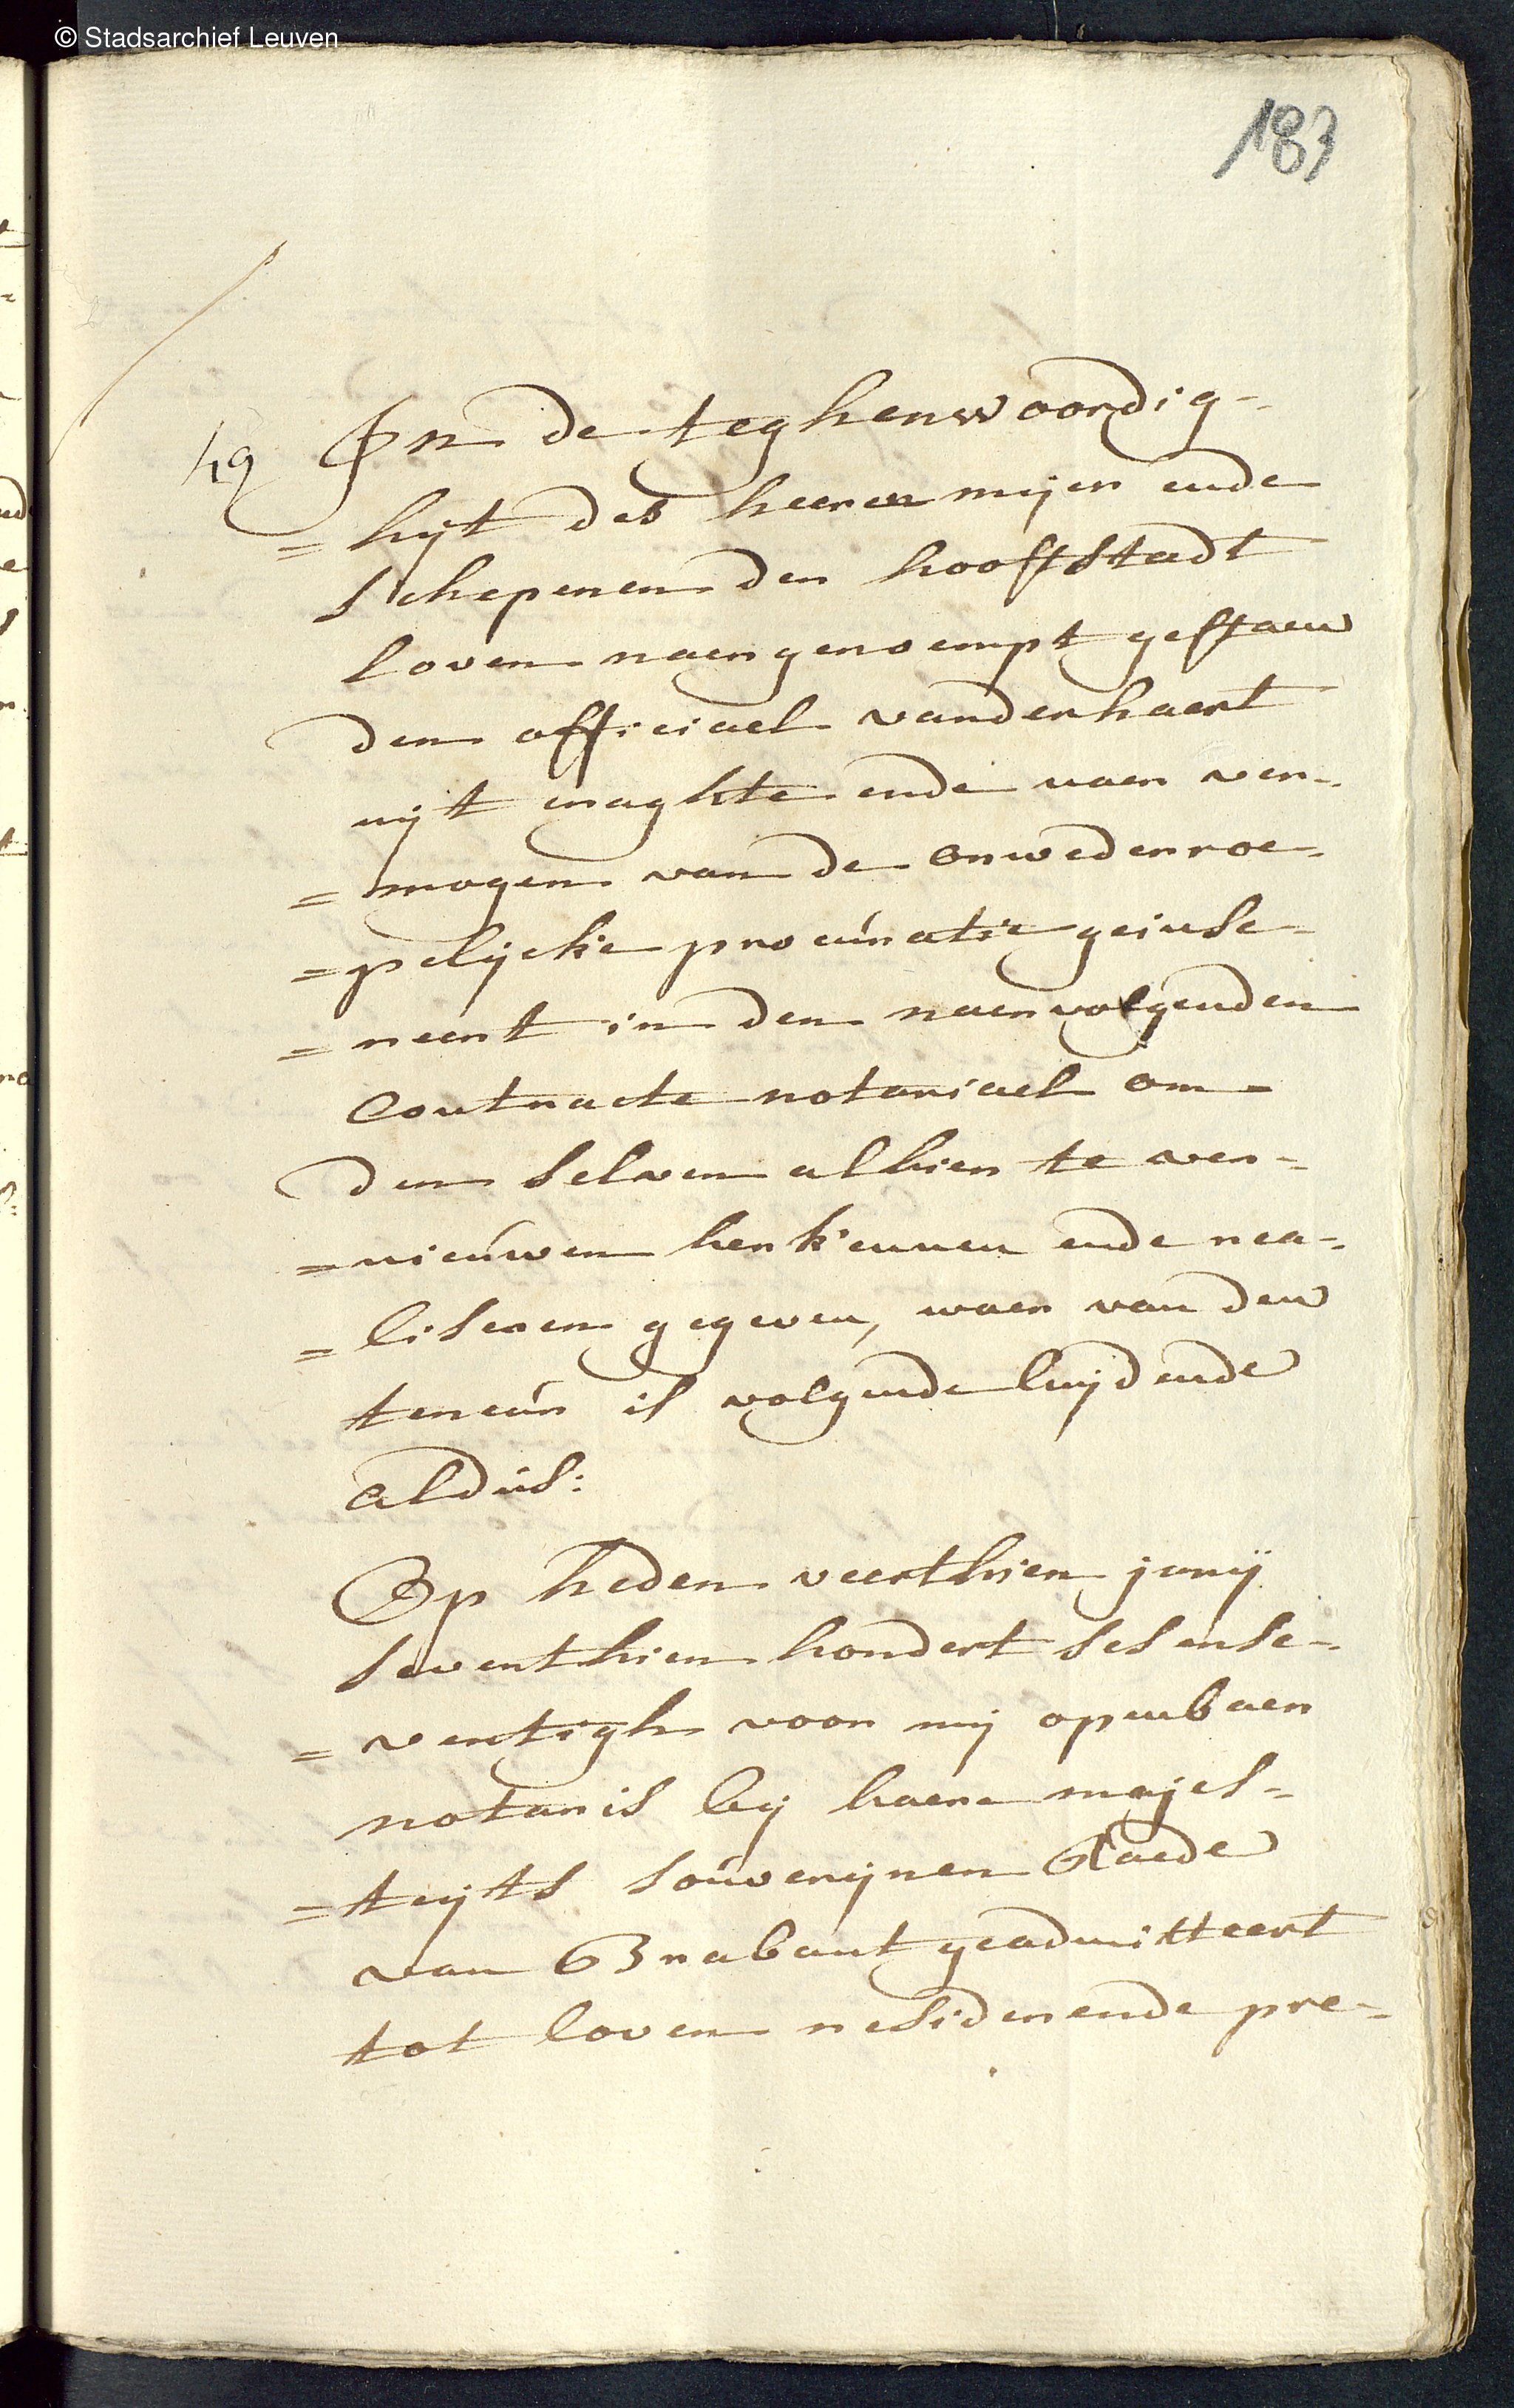 © Stadsarchief Leuven
183
49 In de teghenwoordig-
=hijt des heeren mijer ende
schepenen der hooftstadt
loven naergenoempt gestaen
den officiael vanderhaert
uijt maghte ende naer ver-
=mogen van de onwederroe-
=pelijcke procúratie geinse-
=reert in den naervolgenden
Contracte notariael om
den selven alhier te ver-
=nieúwen herkennen ende rea-
=liseren gegeven, waer van den
teneúr is volgende luijdende
aldús:
Op heden veerthien junij
seventhien hondert sesense-
=ventigh voor mij openbaer
notaris bij haere majes-
=teijts soúverijnen Raede
van Brabant geadmitteert
tot loven residerende pre-